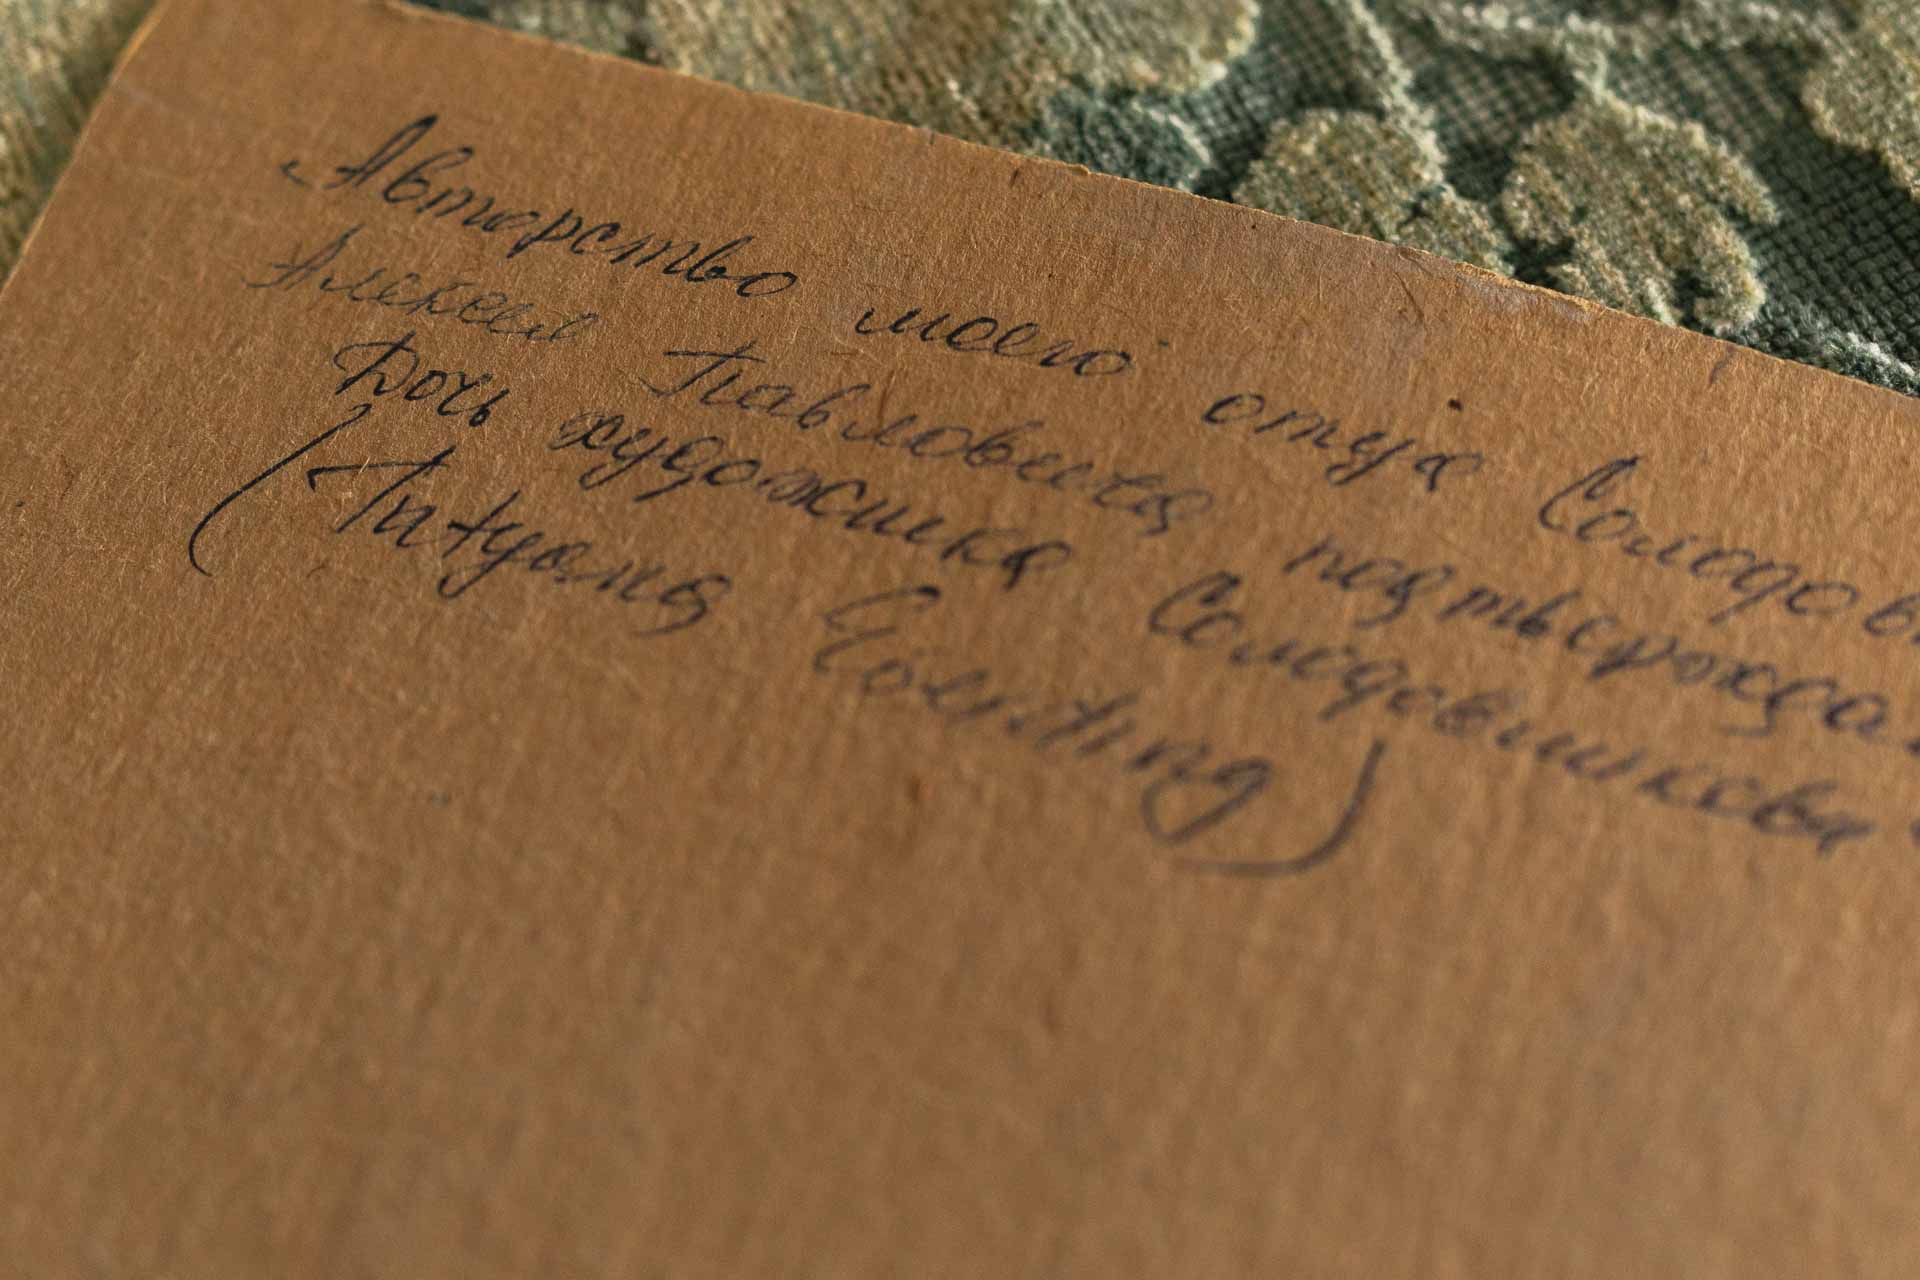 "Авторство моего отца Солодов
Алексея Павловича подтвержда
Дочь художника Солодовникова
(Tatyana